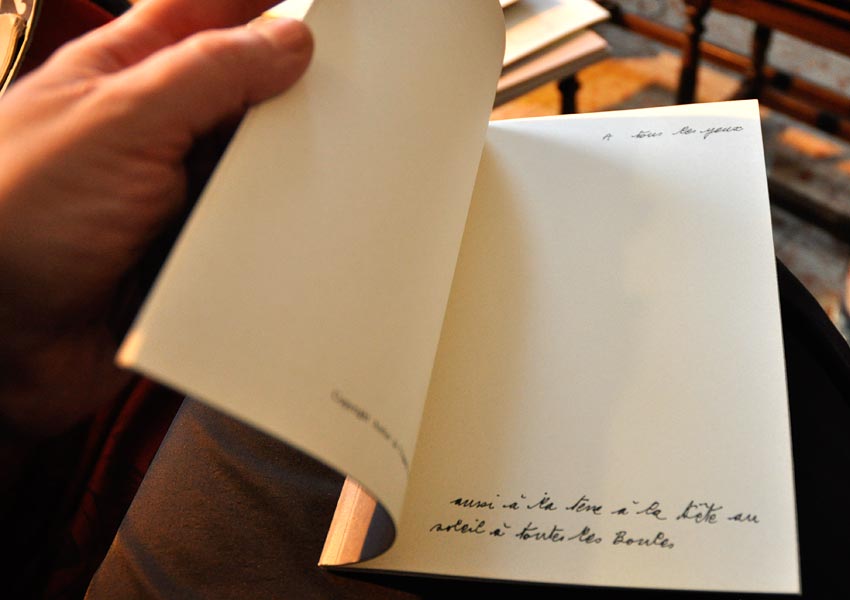 A tous les yeux
Copyright
aussi à la terre à la tête au
soleil à toutes les Boules